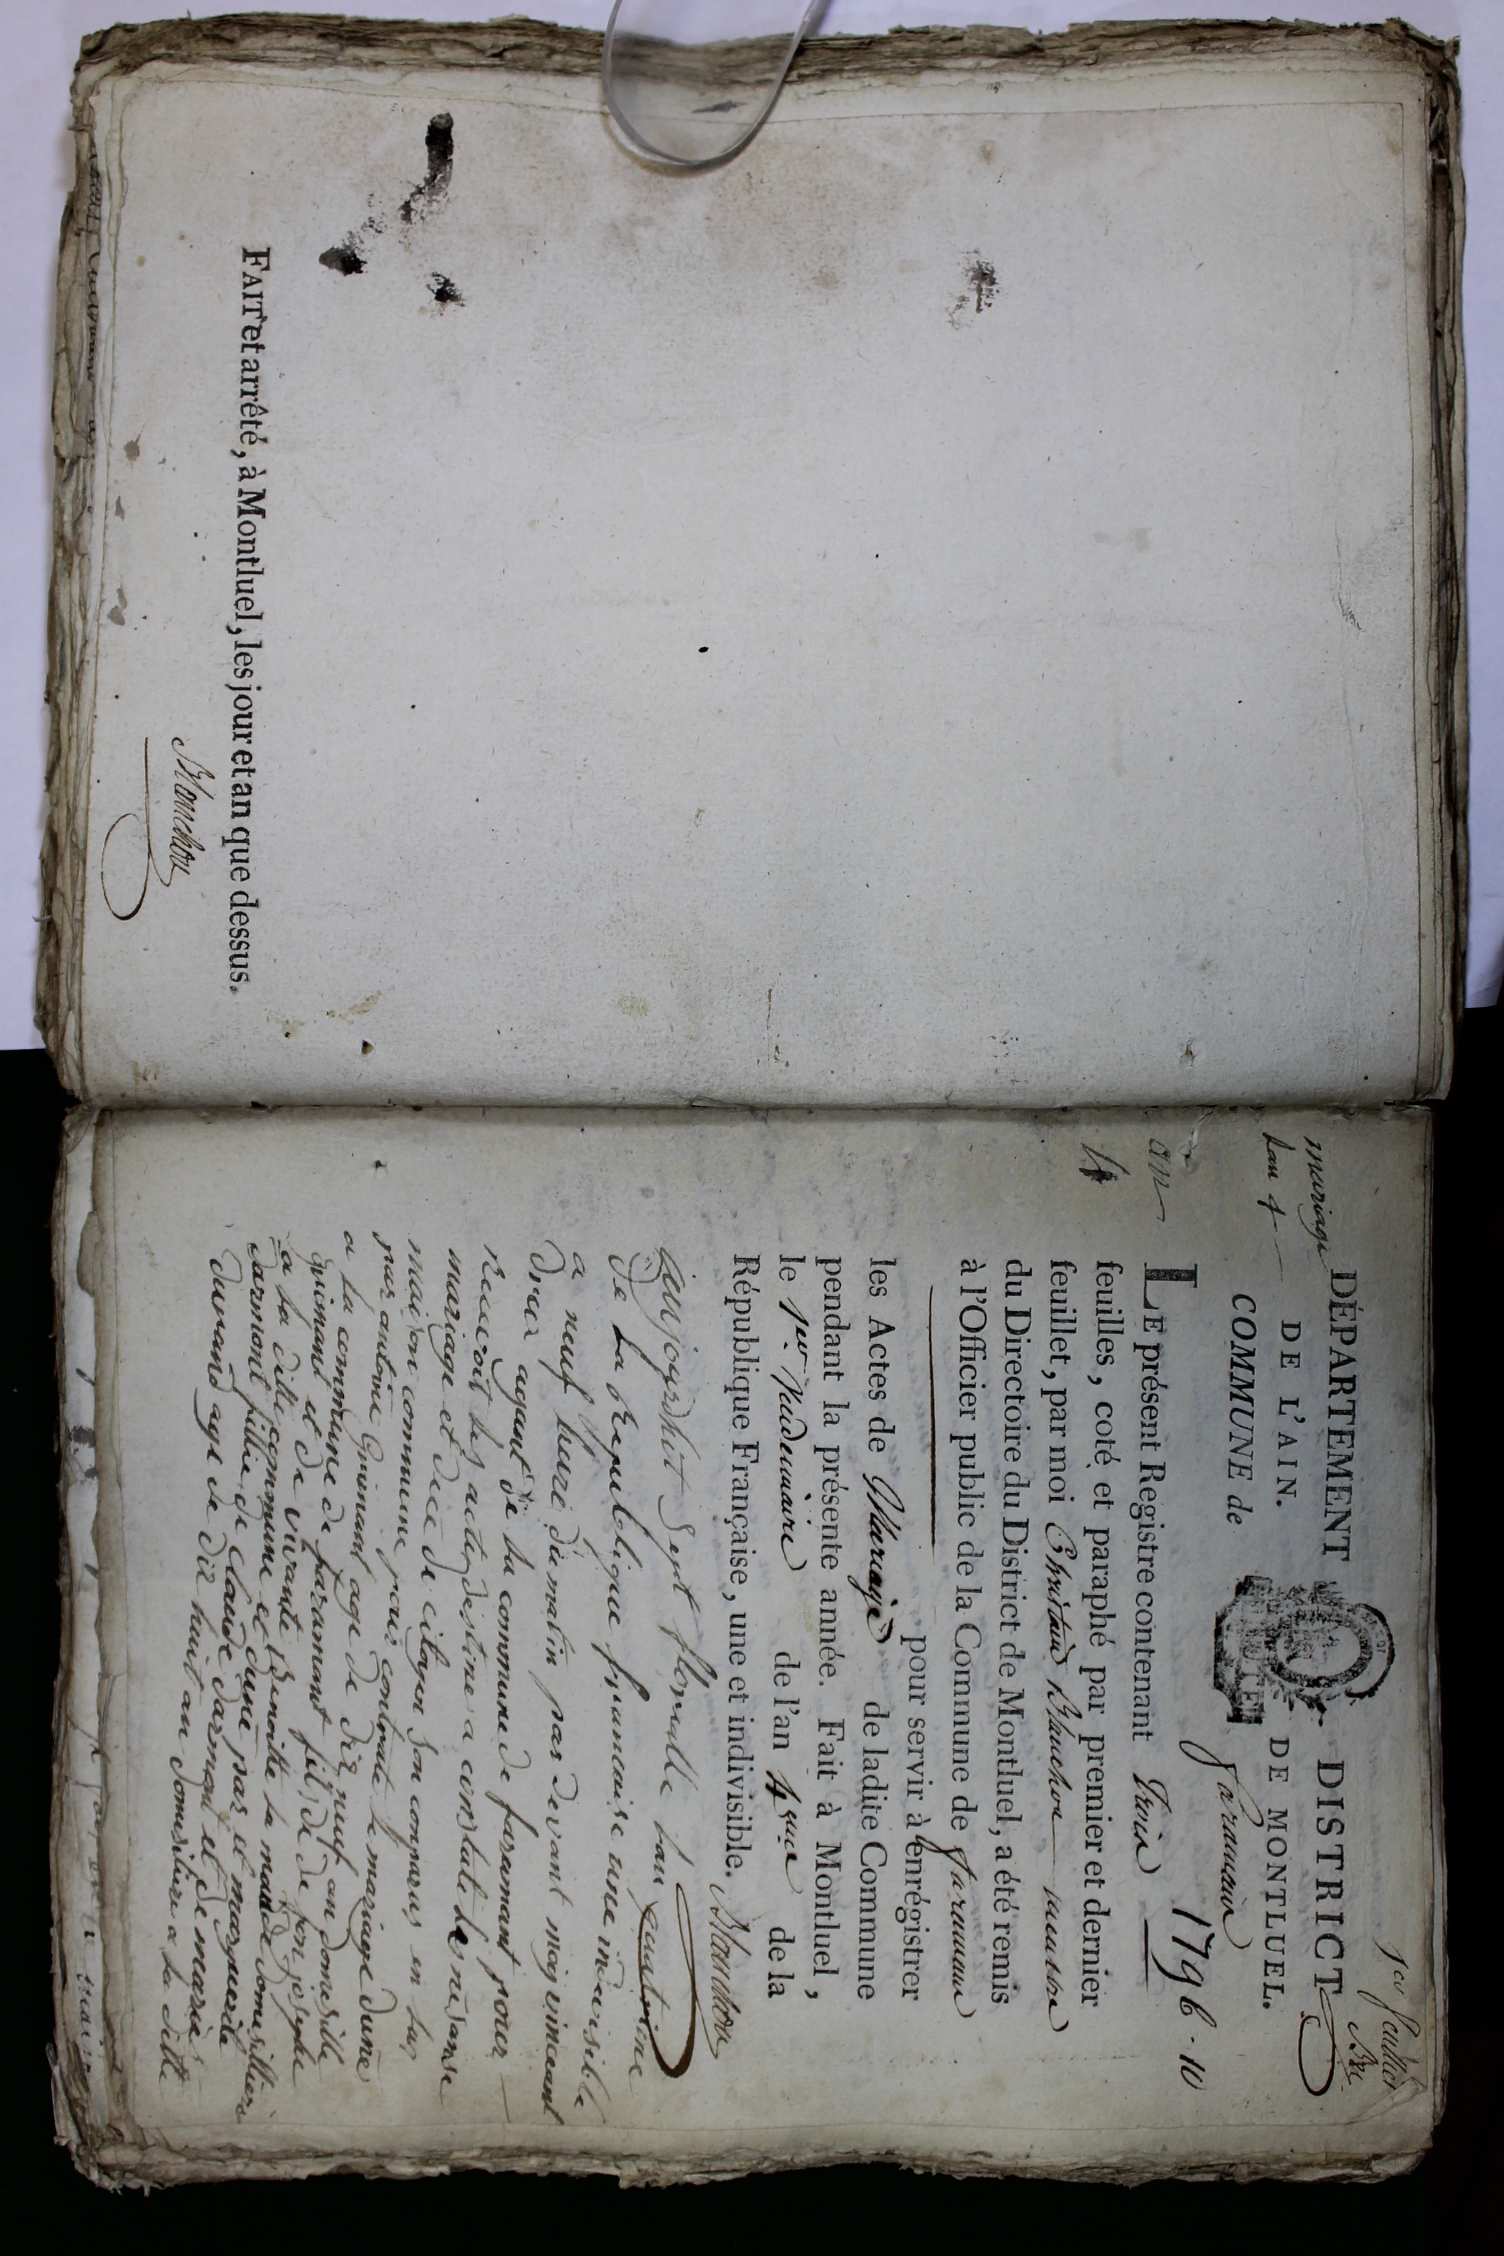 FAIT et arrêté, à Montluel, les jour et an que dessus.
Blanchon
mariage
lan 4
an
4
1er feuillet
Bl.
DÉPARTEMENT
DE L'AIN.
DISTRICT
DE MONTLUEL.
COMMUNE de faramans
1796 - 10
LE présent Registre contenant trois
feuilles, coté et paraphé par premier et dernier
feuillet, par moi Blanchon
du Directoire du District de Montluel, a été remis
à l'Officier public de la Commune de faramans
pour servir à enrégistrer
les Actes de Mariage de ladite Commune
pendant la présente année. Fait à Montluel,
le 1er. de l'an 4eme de la
République Française, une et indivisible. Blanchon
jourjoudhit sept floralle lan quatrime
de la republique francaise une indivisible
a neuf heure du matin par devant moy vinceant
agant de la commune de faramant pour
recevoit les actes destine a constate les nesanse
mariage et dece de citoyen son comparus en la
maison commune pour contracte le mariage dune
par antoine Guinant age de dix neuf an domesille
a la commune de faramant fils de de fon josephe
guinant et de vivante benoitte la domesillier
a la ditte commune et dune par et marguerite
darmont fillie de claude darmont et de marie
durand age de dix huit an domesiliere a la ditte